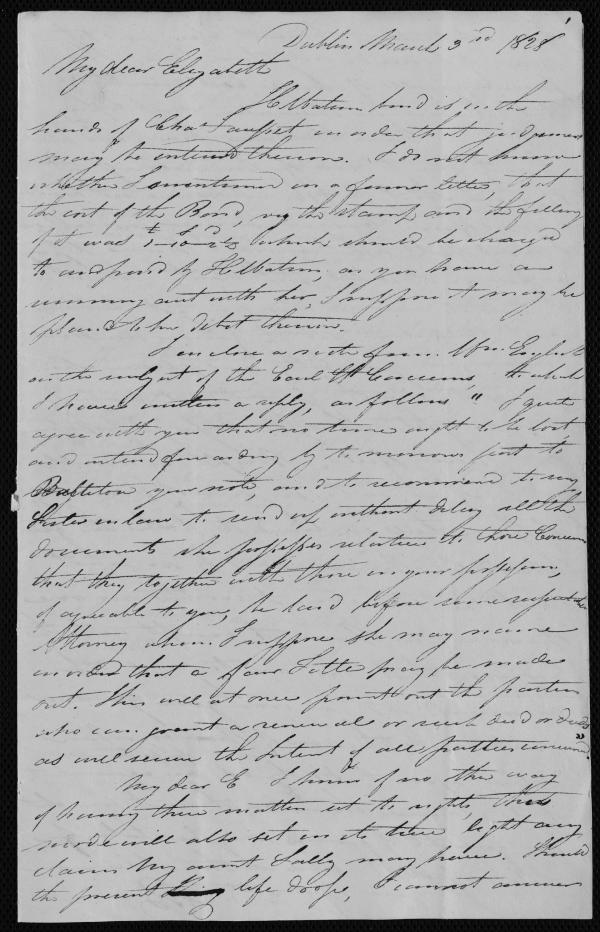 Dublin March 3rd 1828
My dear Elizabeth
bond is in the
hands of Chas in order that judgment
may be entered thereon. I do not know
whether I mentioned in a former letter, that
the cost of the Bond, viz the stamp and the filling
of it was which should be charged
to and paid by as you have an
running acct with her, I suppose it may be
placed to her debit therein.
I enclose a note from Wm. English
on the subject of the Earl St Concerns, to which
I have written a reply, as follows " I quite
agree with you that no time ought to be lost
and intend forwarding by to morrows post to
your note, and to recommend to my
Sister in law to send up without delay all the
documents she possesses relative to those Concerns
that they together with those in your possession,
if agreeable to you, be laid before some respectable
Attorney whom I suppose she may name
in order that a fair Title may be made
out. This will at once point out the parties
who can grant a renewal or such deed or deeds
as will secure the Interest of all parties concerned"
My dear E I know of no other way
of having these matters set to rights, this
mode will also set in its true light any
claims my aunt Sally may have. Should
the present life drop, I cannot answer